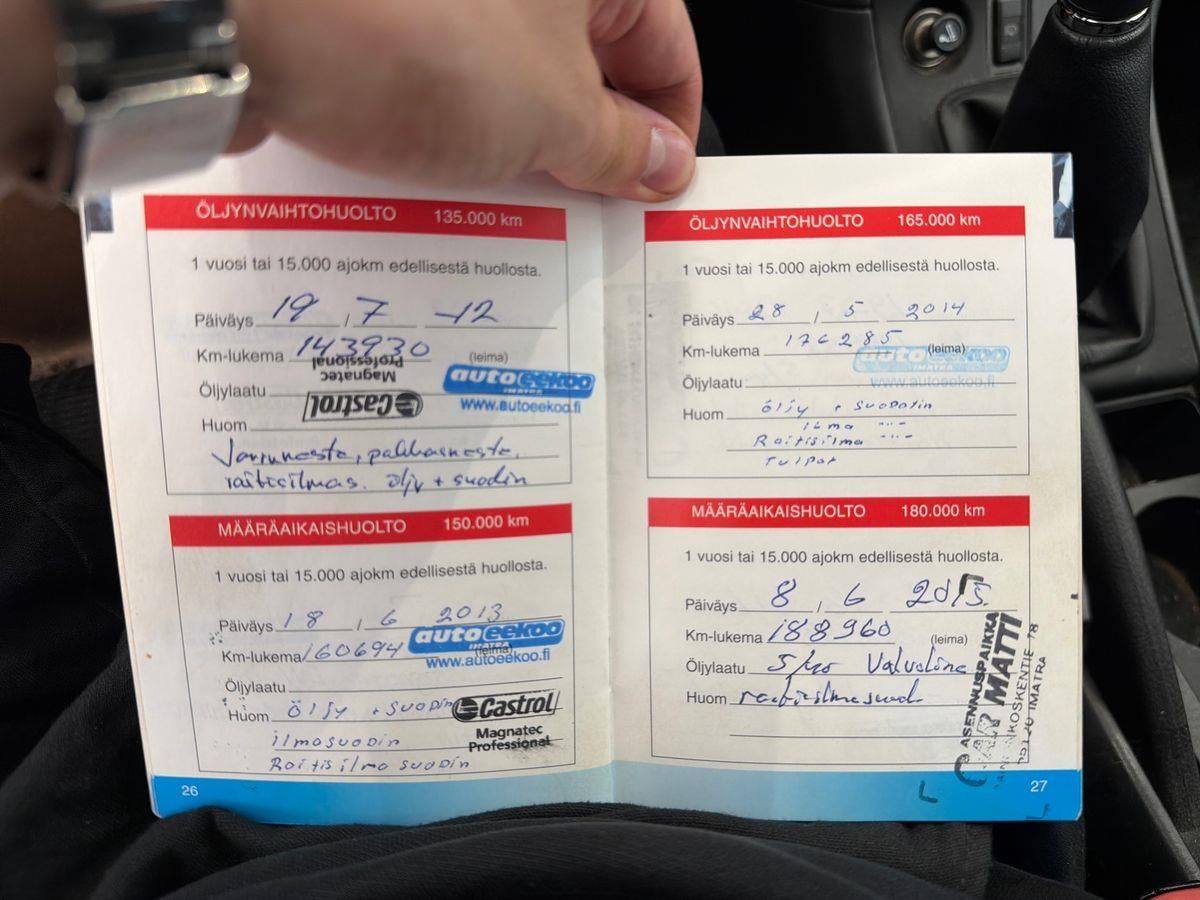 ÖLJYNVAIHTOHUOLTO 135.000 km
1 vuosi tai 15.000 ajokm edellisestä huollosta.
Päiväys 19 / 7 -12
Km-lukema 143930
(leima)
Magnatec
Professional
auto eekoo
IMATRA
www.autoeekoo.fi
Öljylaatu
Castrol
Huom
raitisilmas. öljy + suodin
MÄÄRÄAIKAISHUOLTO 150.000 km
1 vuosi tai 15.000 ajokm edellisestä huollosta.
Päiväys 18 / 6 2013
Km-lukema 160694
auto eekoo
IMATRA
(leima)
www.autoeekoo.fi
Öljylaatu
Huom öljy + suodin
Castrol
Magnatec
Professional
ilmasuodin
Raitisilma suodin
26
ÖLJYNVAIHTOHUOLTO 165.000 km
1 vuosi tai 15.000 ajokm edellisestä huollosta.
Päiväys 28 / 5 2014
Km-lukema 176285
(leima)
auto eekoo
IMATRA
www.autoeekoo.fi
Öljylaatu
Huom öljy + suodatin
ilma -"-
Raitisilma -"-
Tulpat
MÄÄRÄAIKAISHUOLTO 180.000 km
1 vuosi tai 15.000 ajokm edellisestä huollosta.
Päiväys 8 / 6 2015
Km-lukema 188960
(leima)
Öljylaatu 5/40 Valvoline
Huom raitisilmasuod.
ASENNUSPAIKKA
CAR MATTI
IMATRA
27